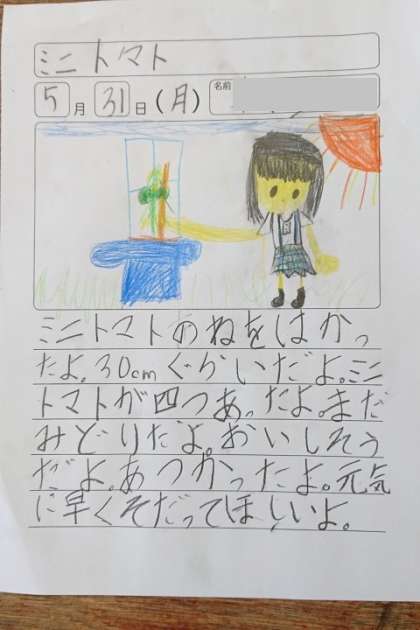 ミニトマト
5月31日(月)
名前
ミニトマトのねをはかっ
たよ。30cmぐらいだよ。ミニ
トマトが四つあったよ。まだ
みどりだよ。おいしそう
だよ。あつかったよ。元気
に早くそだってほしいよ。